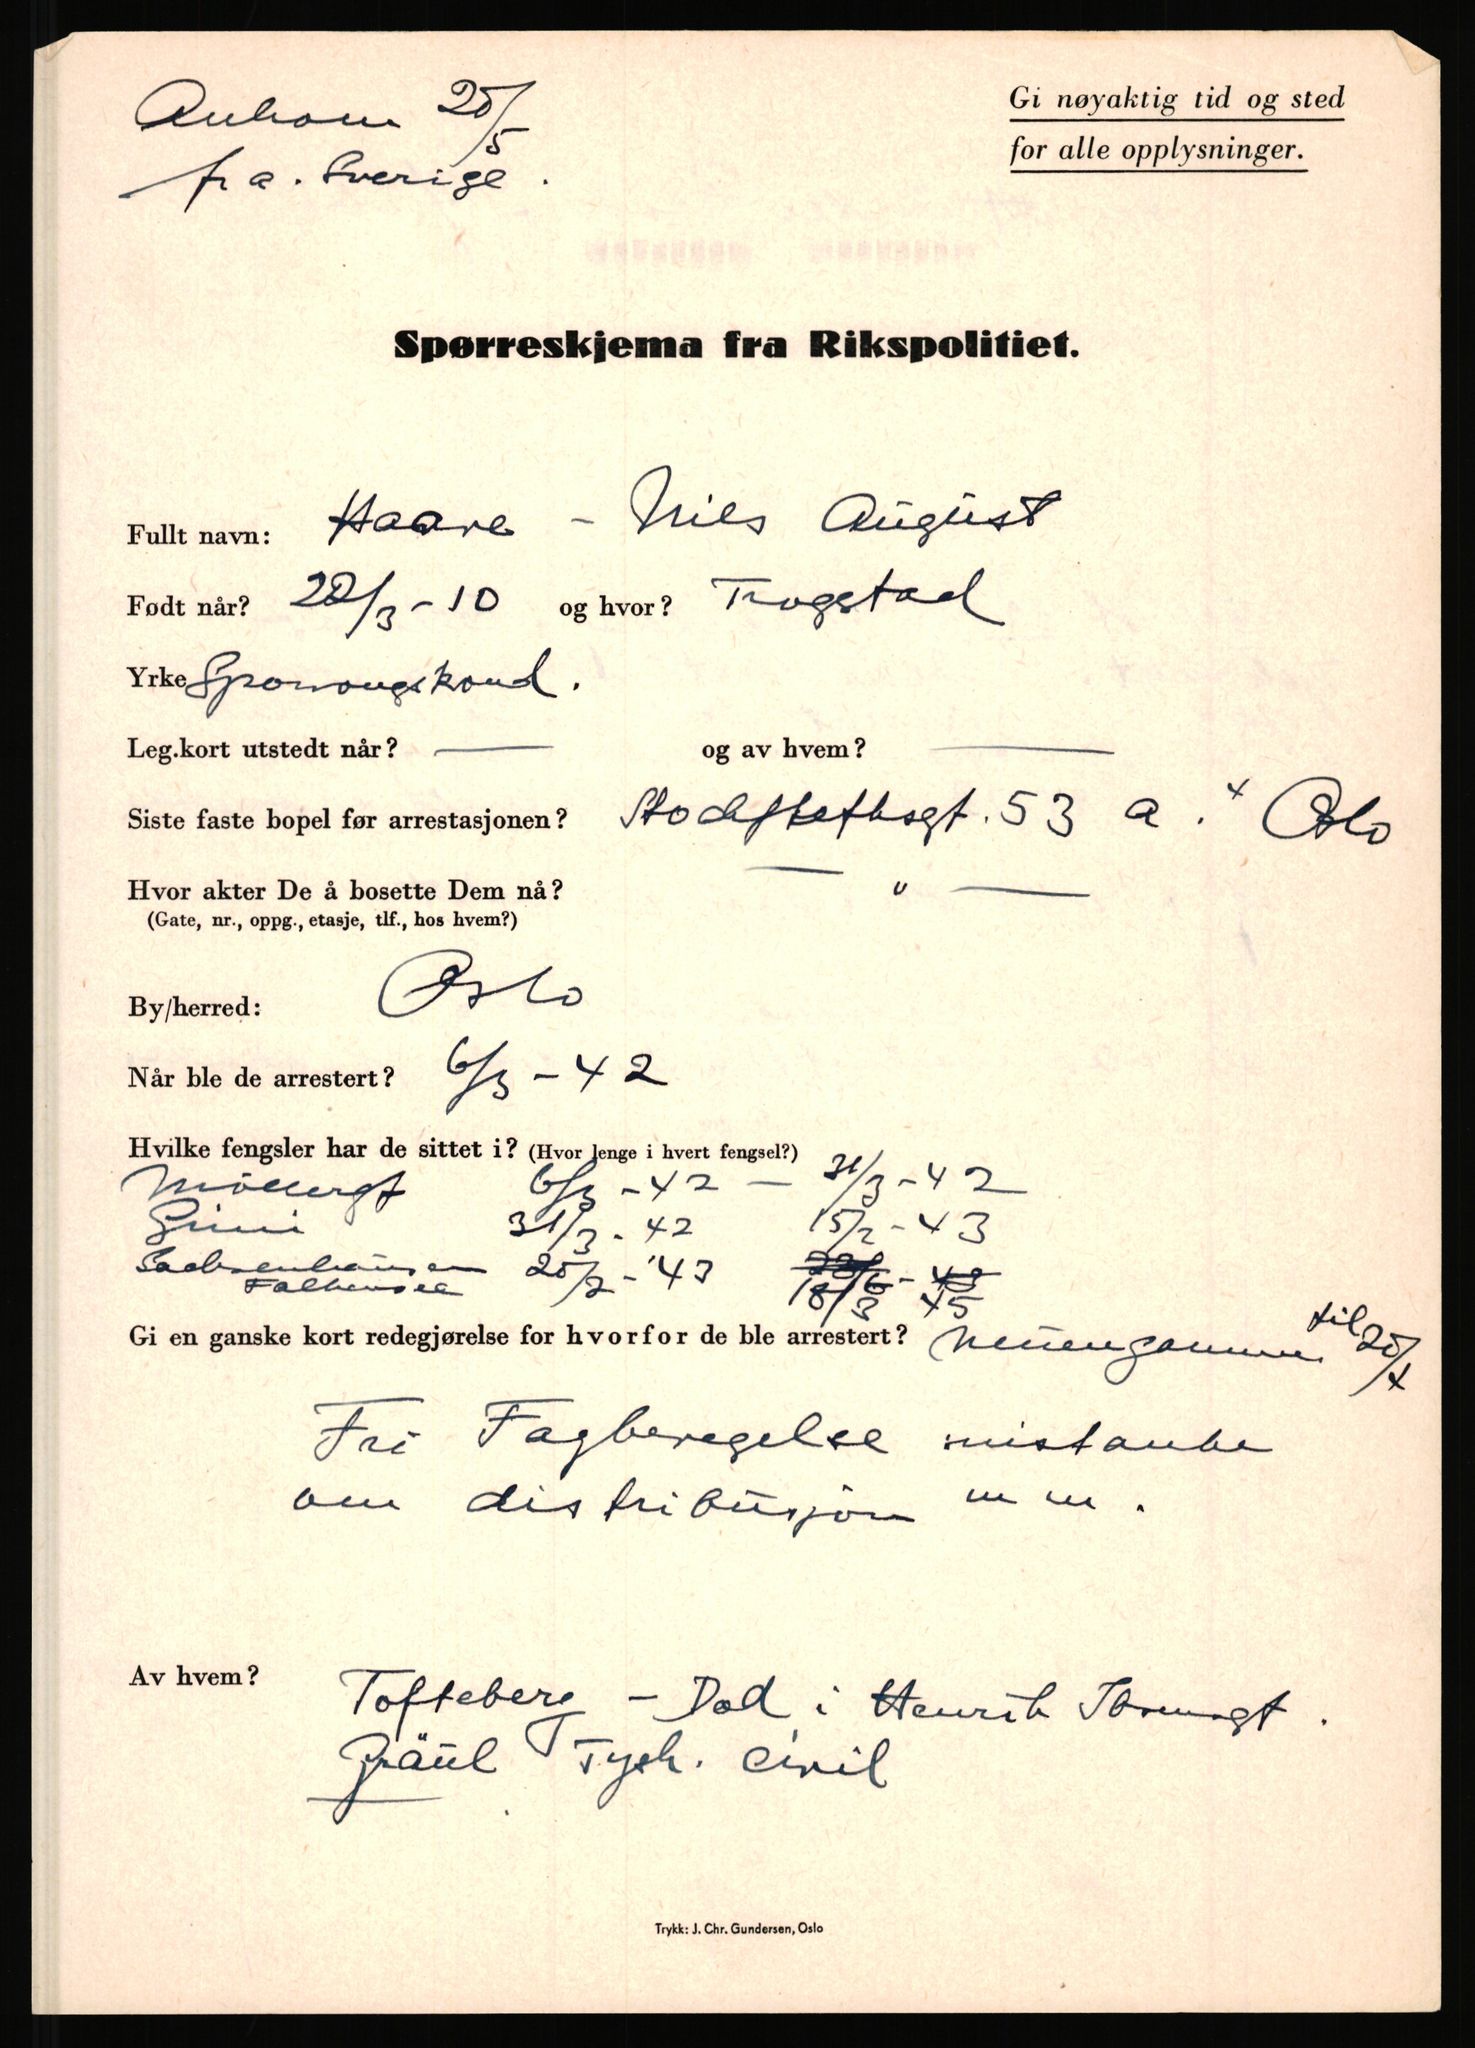 Ankom 25/5
fra. Sverige.
Gi nøyaktig tid og sted
for alle opplysninger.
Spørreskjema fra Rikspolitiet.
Fullt navn: Haare - Nils August
Født når? 22/3 - 10 og hvor? Trogstad
Yrke Sporvongskond.
Leg.kort utstedt når? — og av hvem? —
Siste faste bopel før arrestasjonen? Stockflethsgt. 53 a. Oslo
Hvor akter De å bosette Dem nå? — " —
(Gate, nr., oppg., etasje, tlf., hos hvem?)
By/herred: Oslo
Når ble de arrestert? 6/3 - 42
Hvilke fengsler har de sittet i? (Hvor lenge i hvert fengsel?)
Möllergt 6/3 - 42 — 31/3 - 42
Grini 31/3 - 42 15/2 - 43
Sachsenhausen 25/2 - 43
Falkensee 18/3 45
Gi en ganske kort redegjørelse for hvorfor de ble arrestert? Neuengamme til 20/4
Fri Fagbevegelse mistanke
om distribusjon m m.
Av hvem? Tofteberg - Død i Henrik Ibsensgt.
Gräul Tysk. civil
Trykk: J. Chr. Gundersen, Oslo